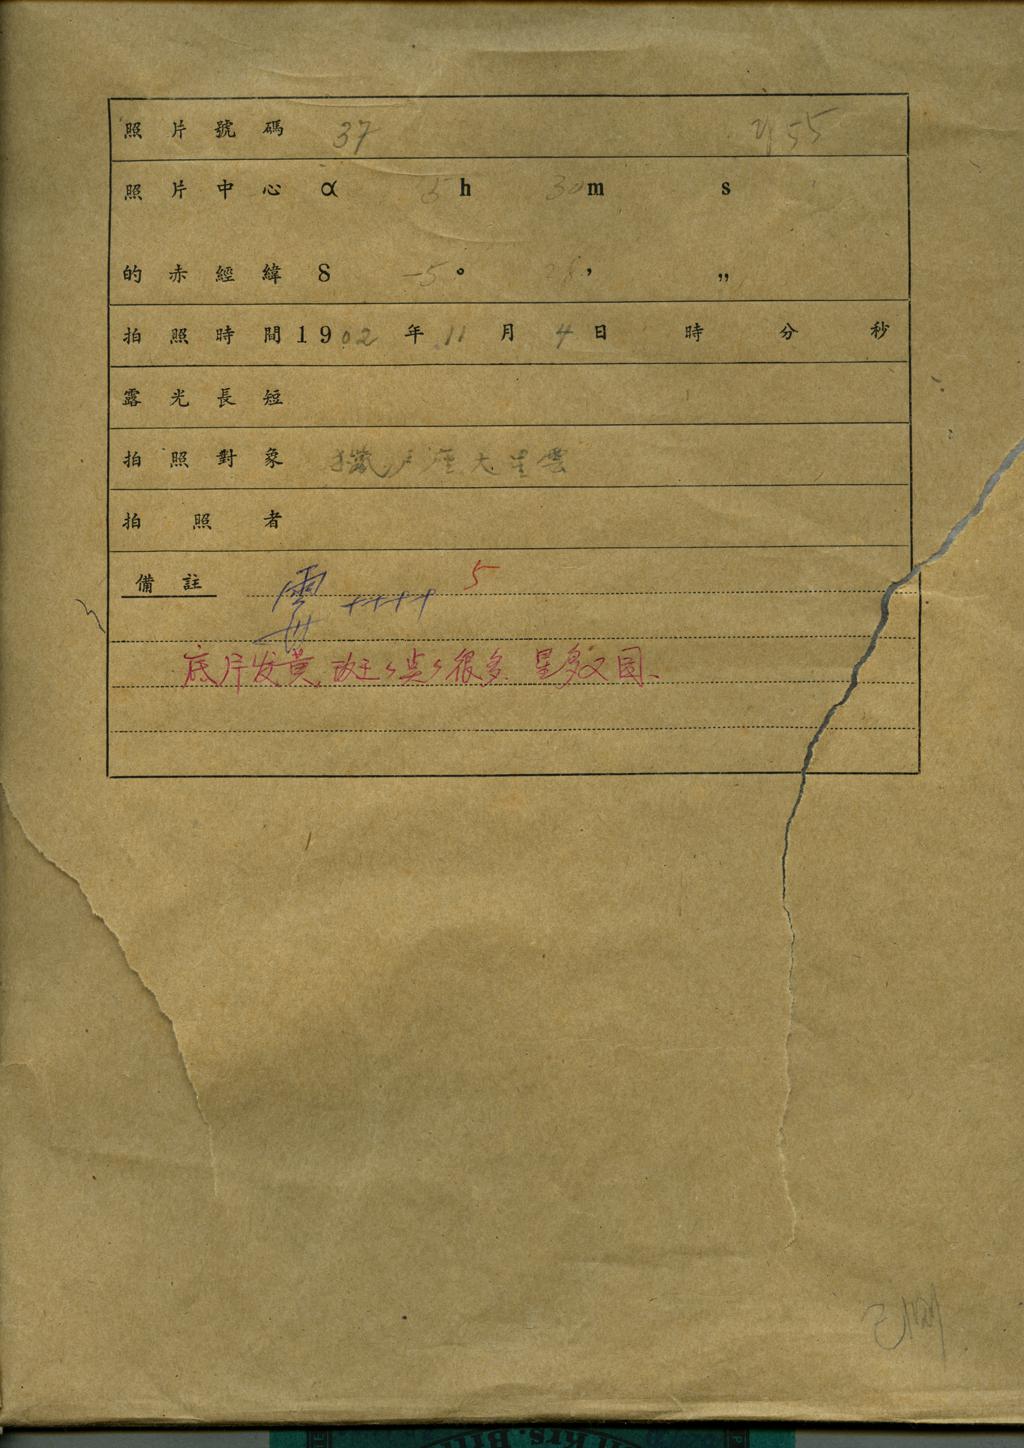 照片號碼 37 455
照片中心 α 5h 30m s
的赤經緯 δ -5° 28′ ″
拍照時間 1902年11月4日 時 分 秒
露光長短
拍照對象 獵戶座大星雲
拍照者
備註 雲 ++++ 5
底片发黄,斑斑点点很多,星多又圆、